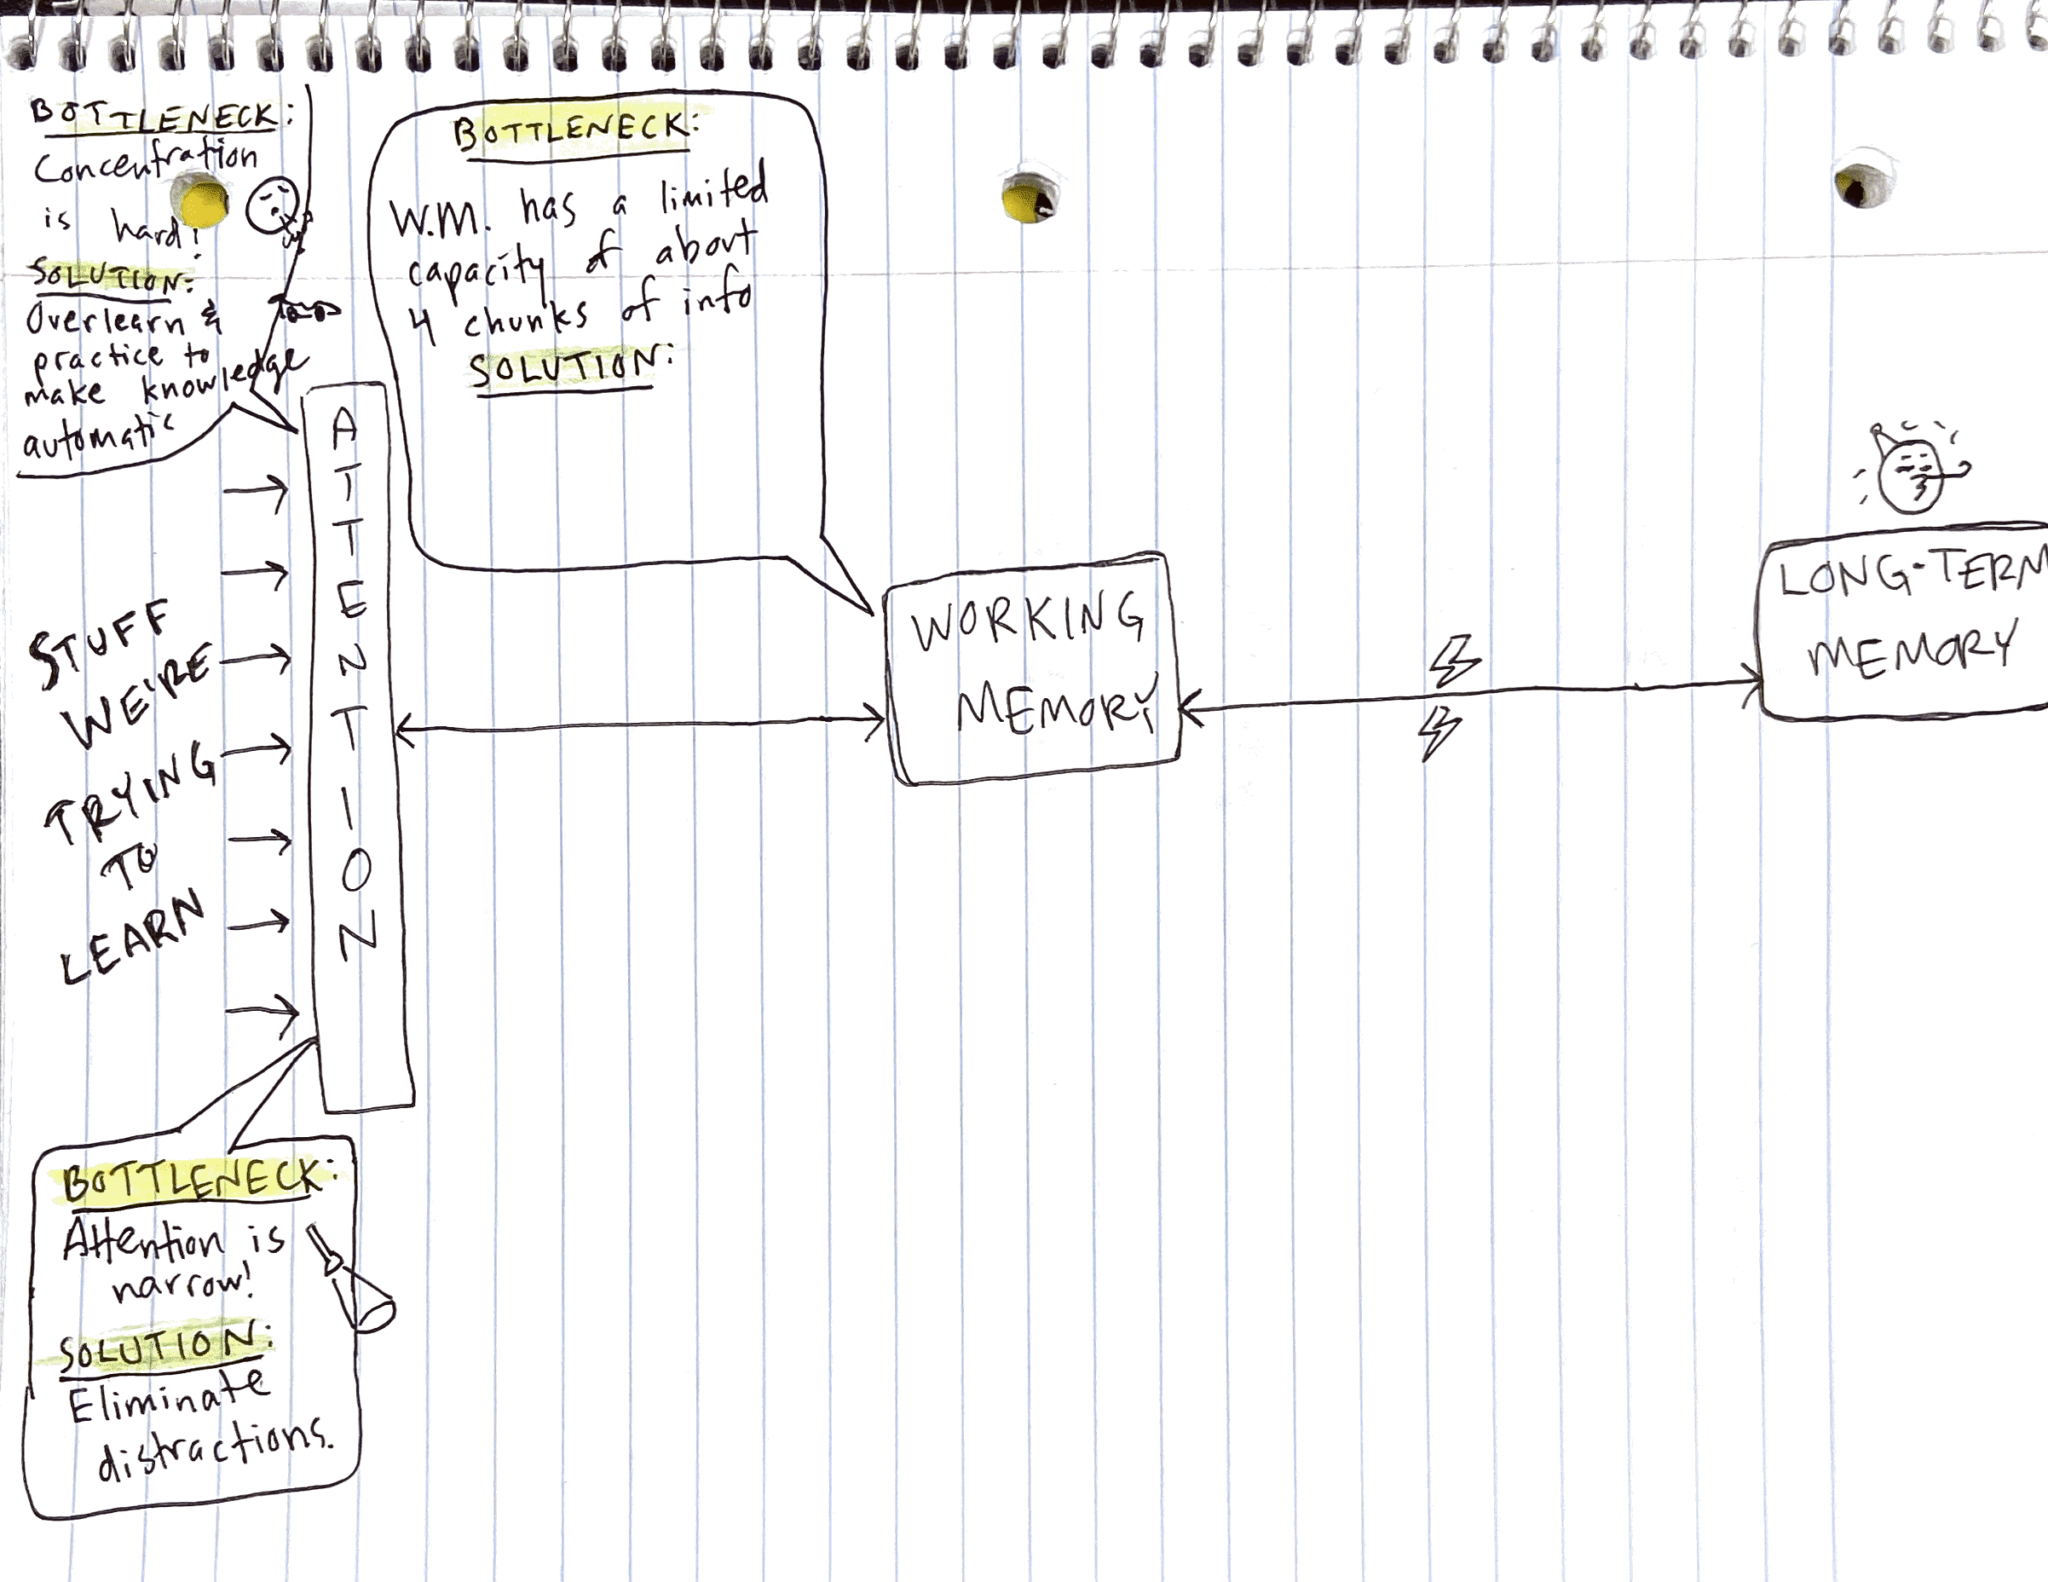 BOTTLENECK:
Concentration
is hard!
SOLUTION:
Overlearn &
practice to
make knowledge
automatic
BOTTLENECK:
W.M. has a limited
capacity of about
4 chunks of info
SOLUTION:
ATTENTION
STUFF
WE'RE
TRYING
TO
LEARN
WORKING
MEMORY
LONG-TERM
MEMORY
BOTTLENECK:
Attention is
narrow!
SOLUTION:
Eliminate
distractions.